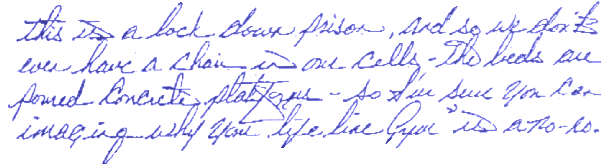 this is a lock down prison, and so we don't
even have a chair in our cells - the beds are
poured concrete platforms - so I'm sure you can
imaging why your "life line Gym" is a no-no.